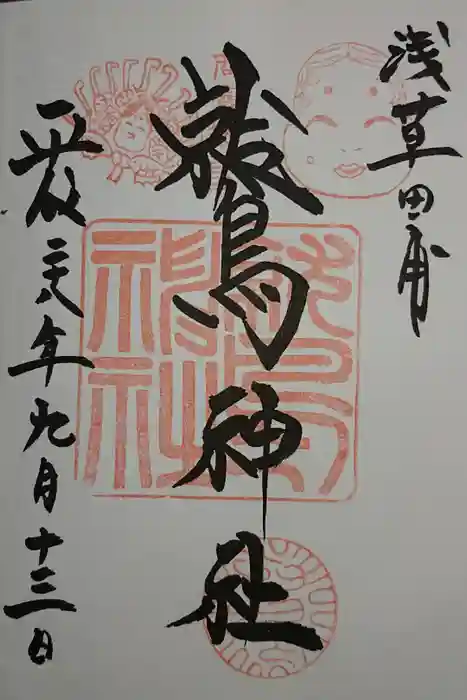 浅草田甫
鷲神社
平成二十八年九月十三日